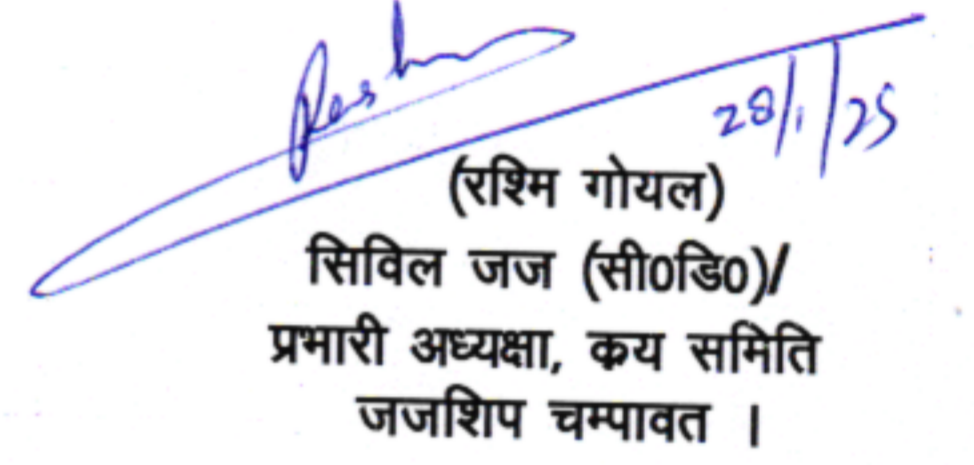 Rash
28/1/25
(रश्मि गोयल)
सिविल जज (सी0डि0)/
प्रभारी अध्यक्षा, क्रय समिति
जजशिप चम्पावत ।